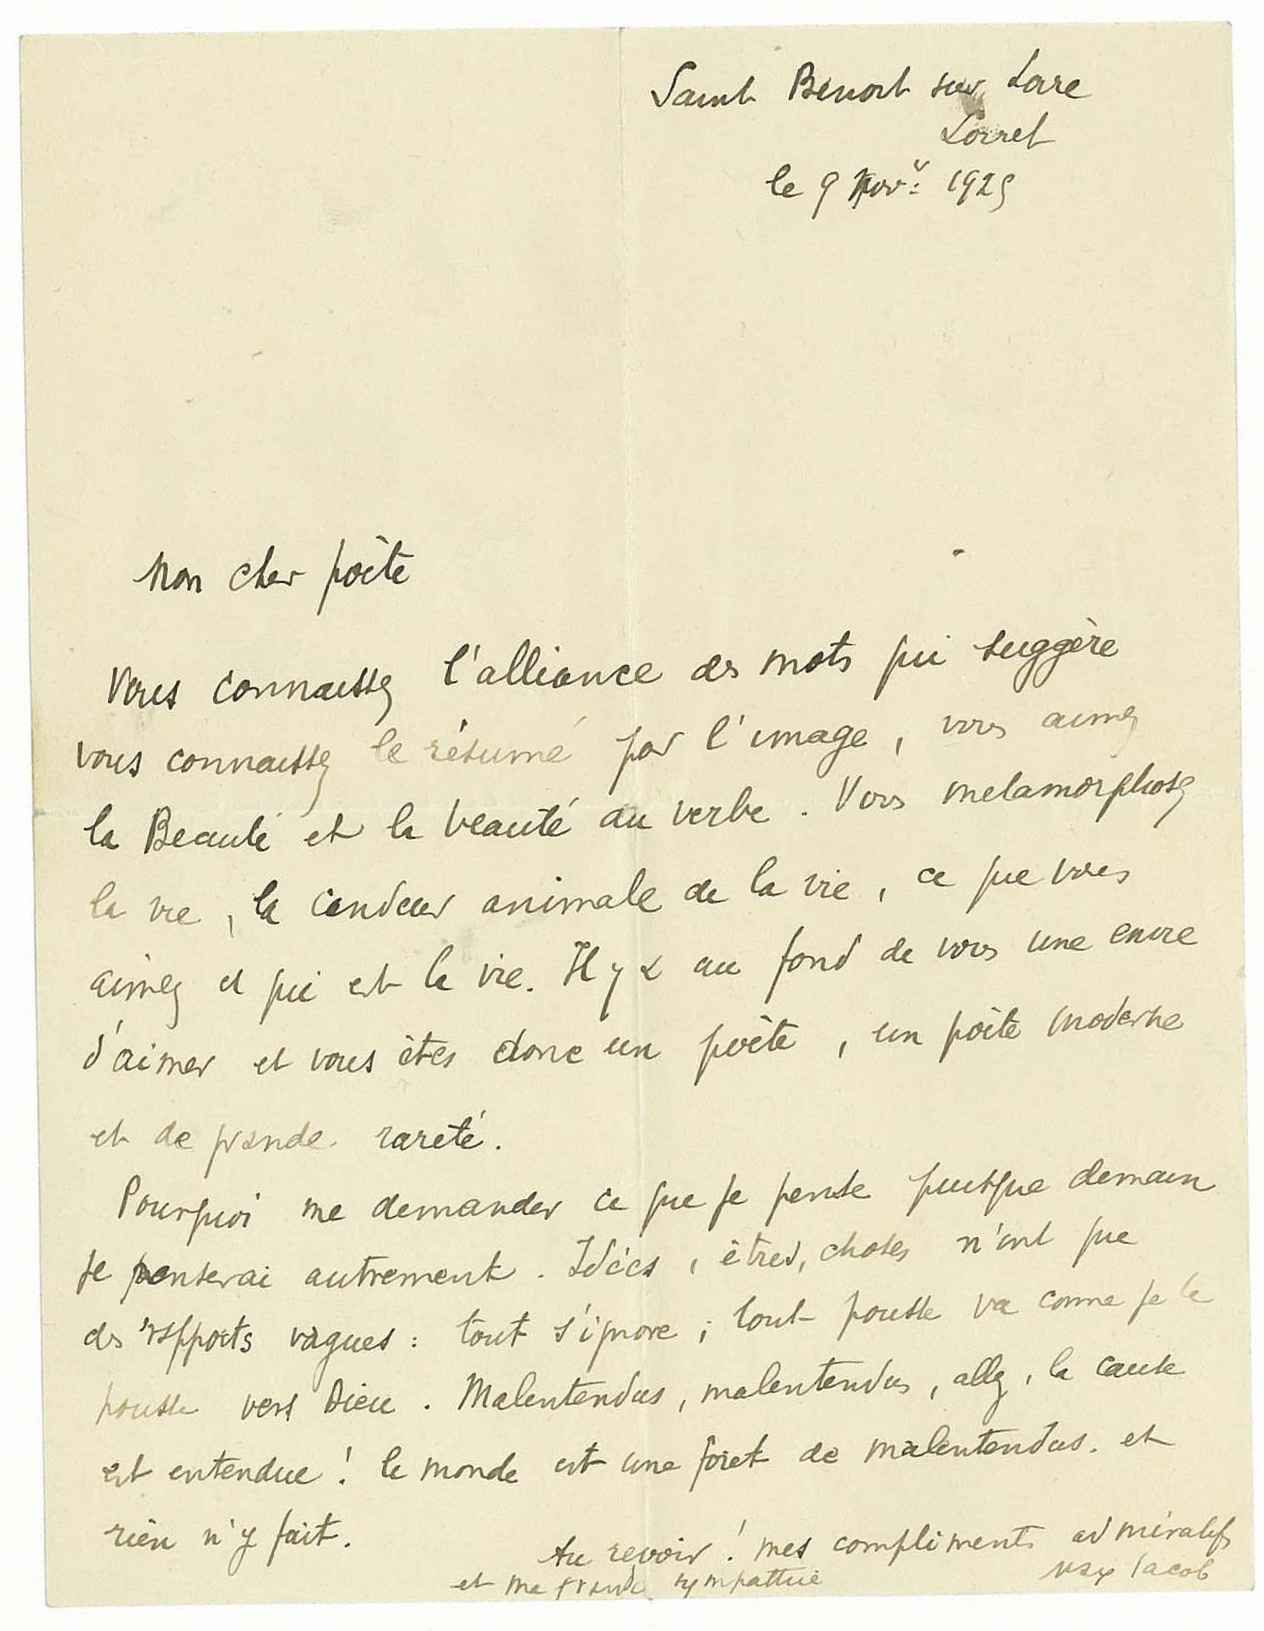 Saint Benoit sur Loire
Loiret
le 9 Nov: 1925
Mon cher poète
Vous connaissez l'alliance des mots qui suggère
vous connaissez le résumé par l'image, vous aimez
la Beauté et la beauté du verbe. Vous metamorphosez
la vie, la candeur animale de la vie, ce que vous
aimez et qui est la vie. Il y a au fond de vous une envie
d'aimer et vous êtes donc un poète, un poète moderne
et de grande rareté.
Pourquoi me demander ce que je pense puisque demain
je penserai autrement. Idées, êtres, choses n'ont que
des rapports vagues: tout s'ignore; tout pousse va comme je le
pousse vers Dieu. Malentendus, malentendus, allez, la cause
est entendue! le monde est une foret de malentendus. et
rien n'y fait.
Au revoir! mes compliments admiratifs
et ma grande sympathie
Max Jacob